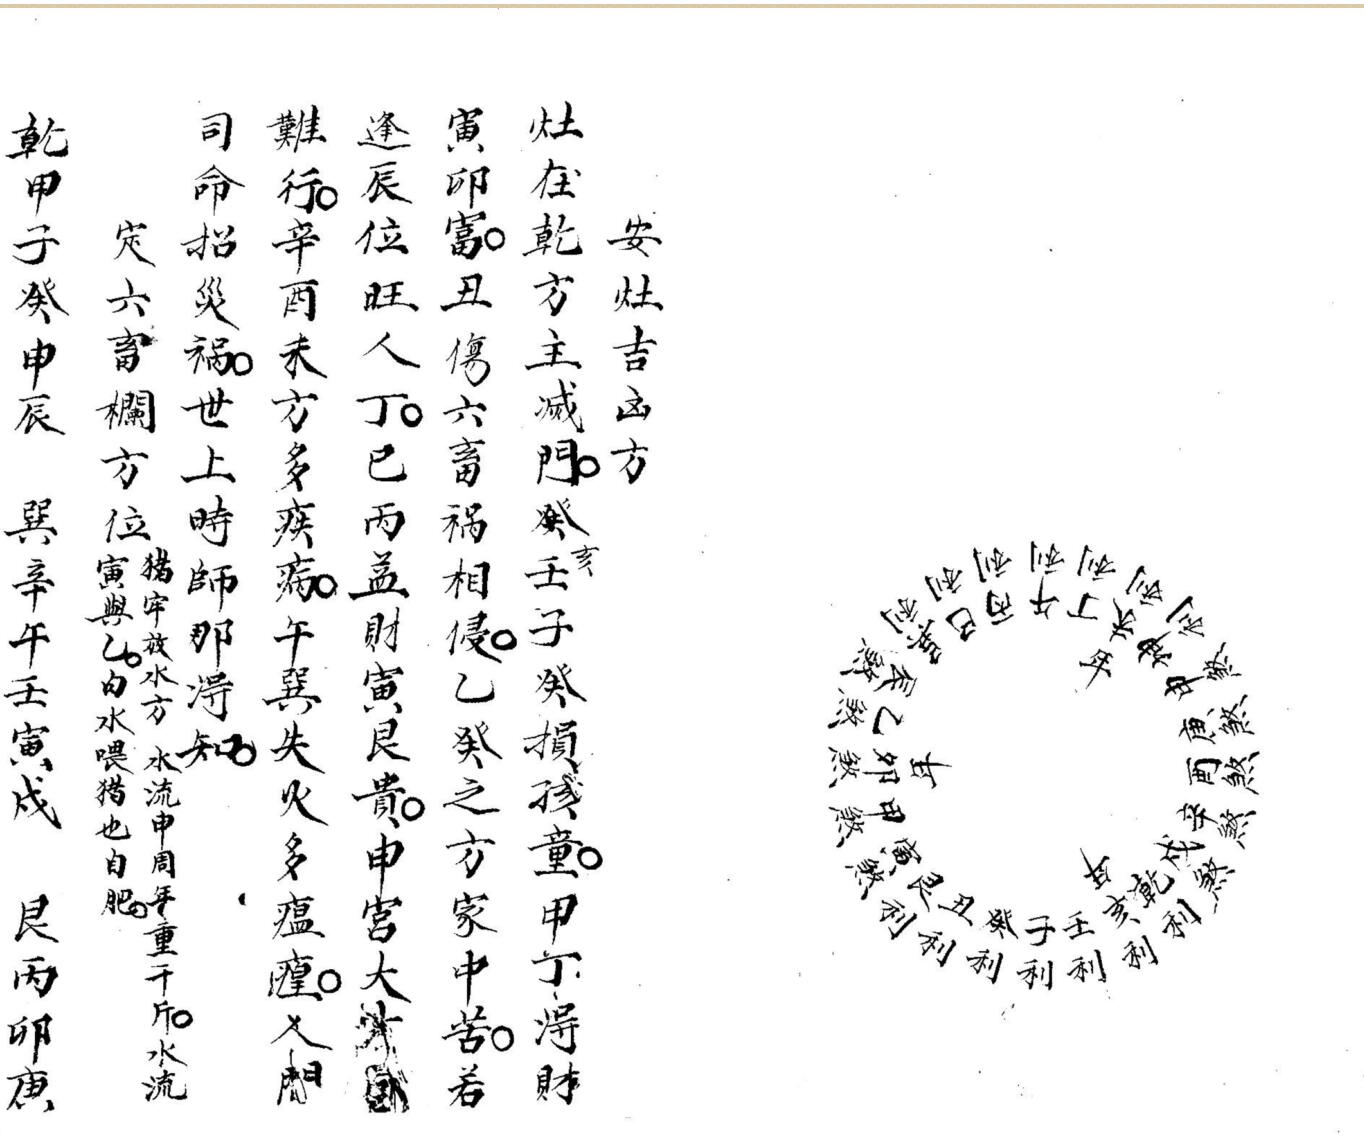 利利利利煞煞煞煞煞利利利利利利利煞煞煞煞煞利利利
午丁未坤申庚酉辛戌乾亥壬子癸丑艮寅甲卯乙辰巽巳丙
年
年
年
安灶吉凶方
灶在乾方主滅門。癸亥壬子癸損孩童。甲丁得財
寅卯富。丑傷六畜祸相侵。乙癸之方家中苦。若
逢辰位旺人丁。巳丙益財寅艮貴。申宮大
難行。辛酉未方多疾病。午巽失火多瘟癀。人間
司命招災祸。世上時師那得知。
定六畜欄方位
猪牢放水方 水流申周年重千斤。水流
寅與乙。白水喂猪也自肥。
乾甲子癸申辰 巽辛午壬寅戌 艮丙卯庚